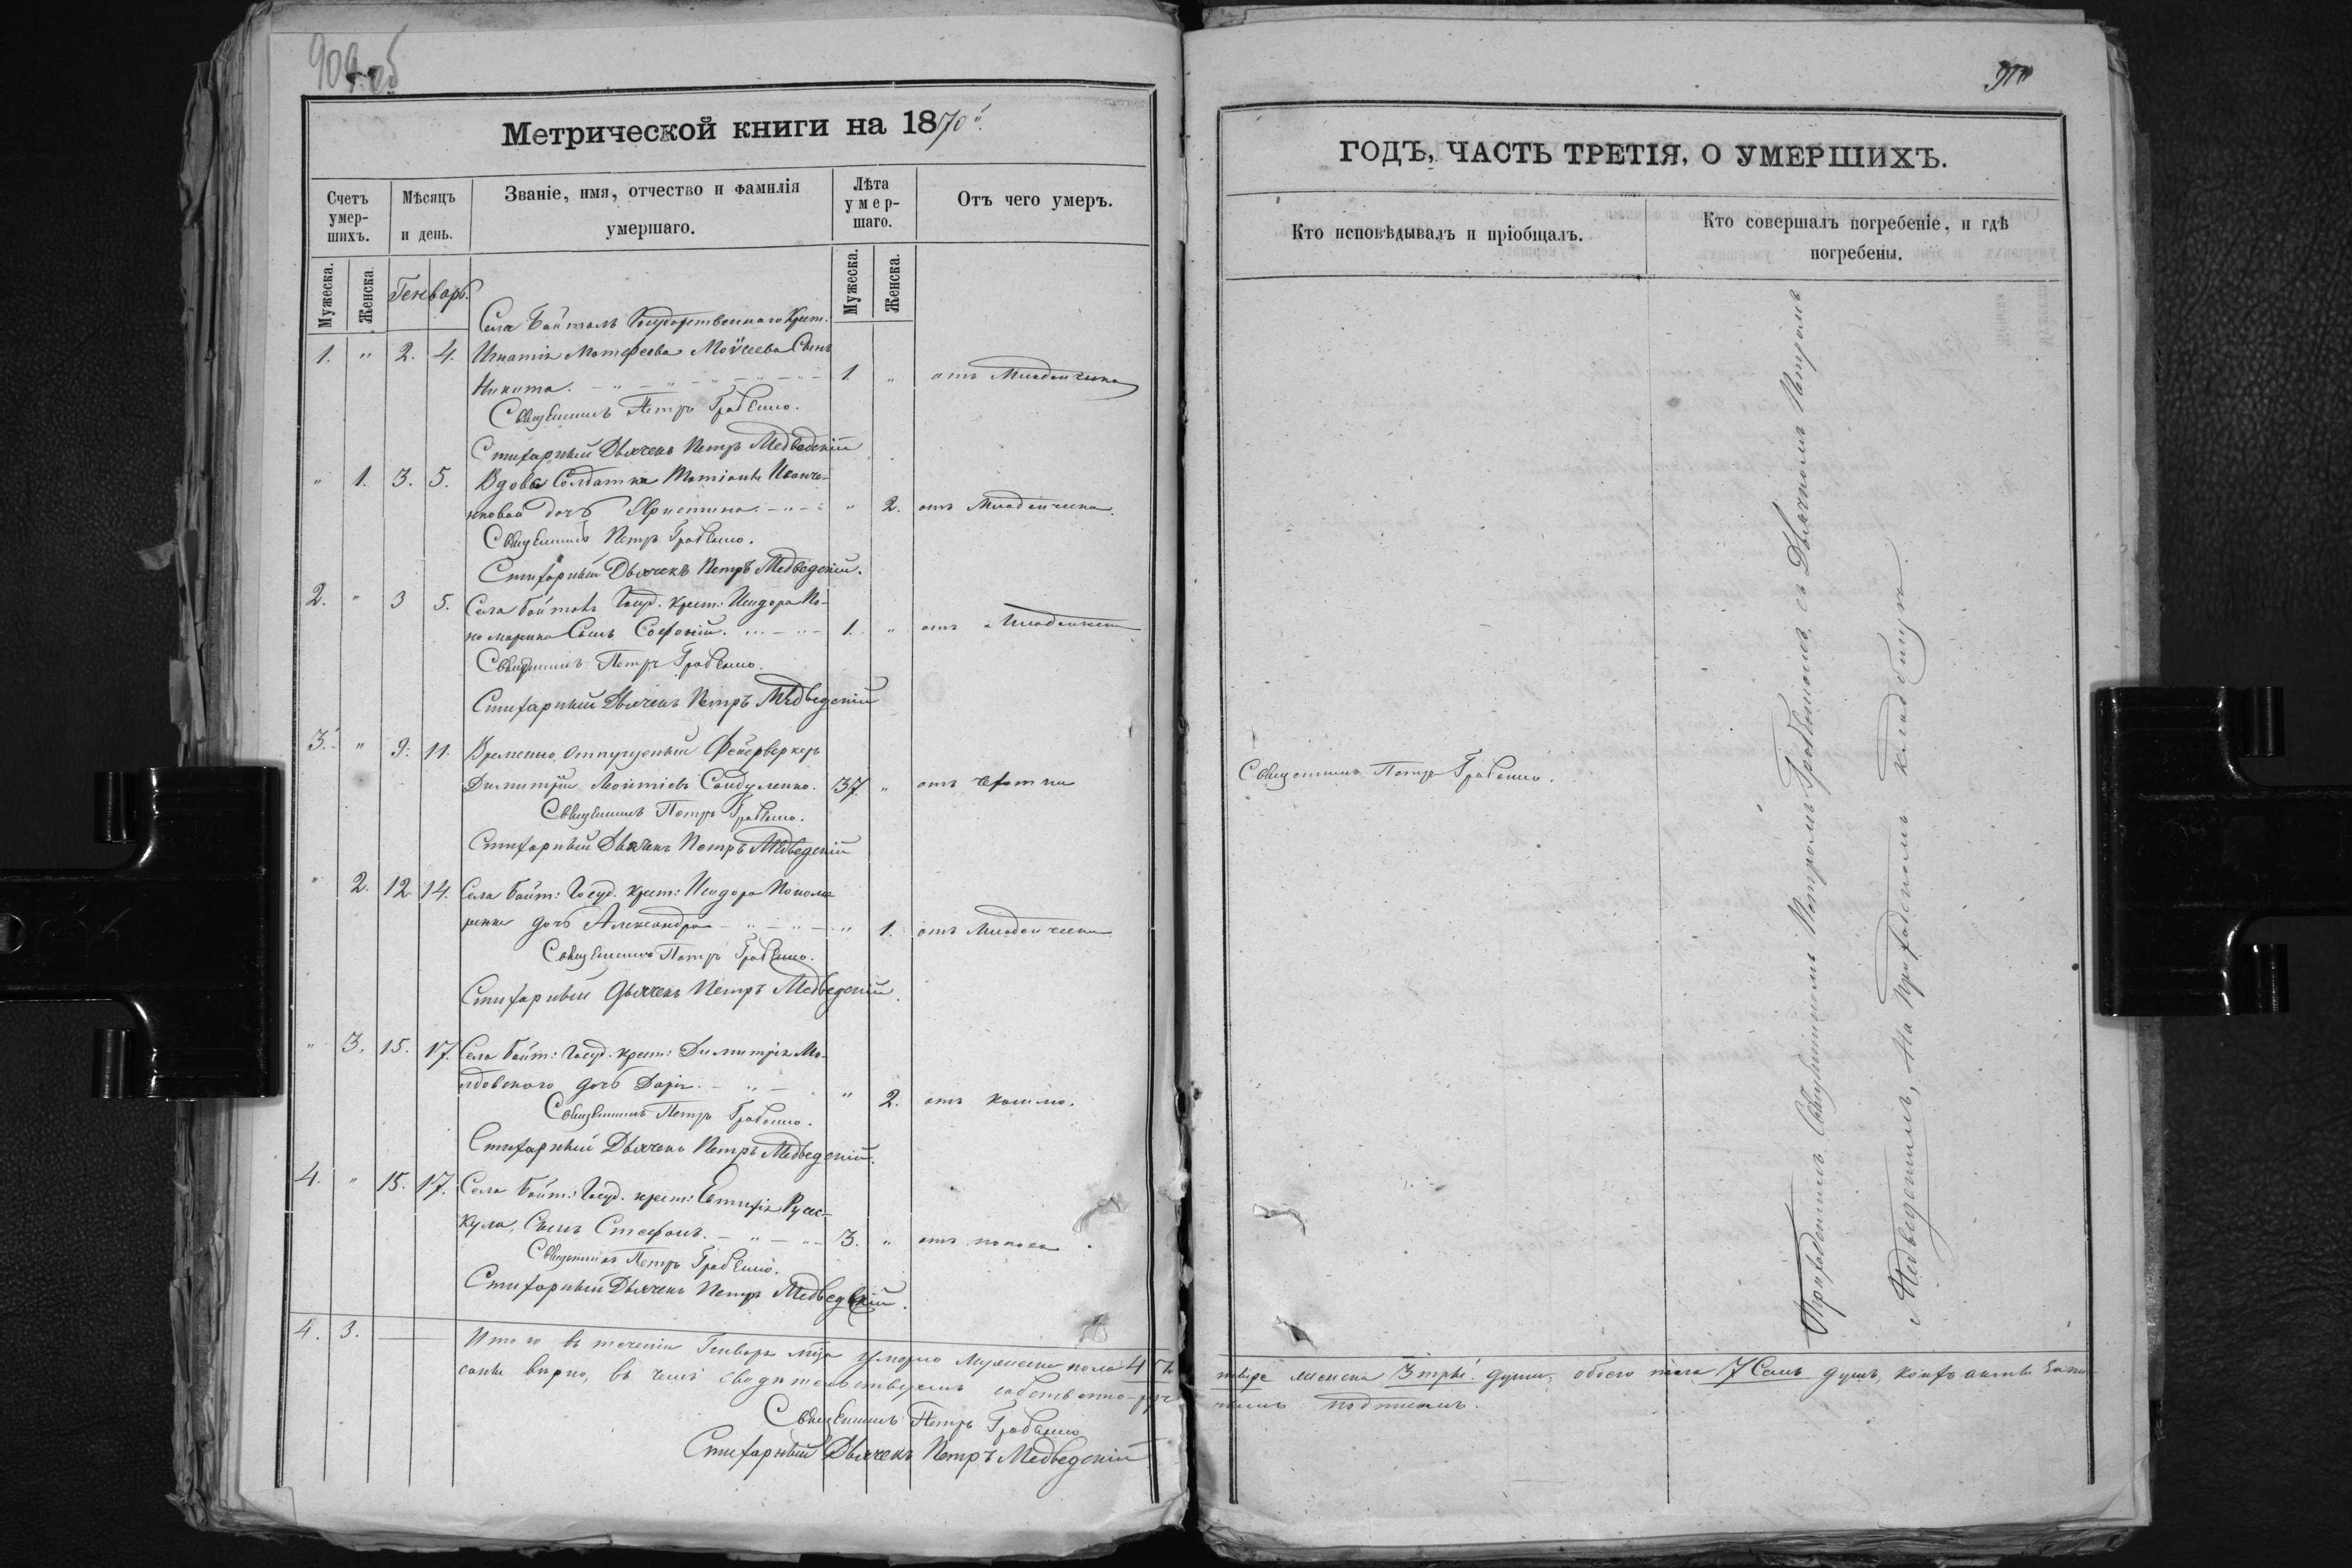 909 об
Метрической книги на 1870й.
Счетъ умерших.
Мѣсяцъ и день.
Званіе, имя, отчество и фамилія умершаго.
Лѣта умершаго.
Отъ чего умеръ.
Мужеска. Женска. Генварь. Мужеска. Женска.
Села Байталъ Государственнаго Крест.
1. " 2. 4. Игнатія Матфеева Моисеева Сынъ
Никита. 1. " отъ Младенческа
Священникъ Петръ
Стихарный Дьячекъ Петръ Медведскій
" 1. 3. 5. Вдовы Солдатки
дочь Христина " 2. отъ Младенческа.
Священникъ Петръ
Стихарный Дьячекъ Петръ Медведскій.
2. " 3 5. Села Байталъ Госуд. Крест: Исидора По-
номаренка Сынъ Софоній. 1. " отъ Младенческа
Священникъ Петръ
Стихарный Дьячекъ Петръ Медведскій
3. " 9. 11. Временно отпущенный Фейерверкеръ
Димитрій Леонтіевъ Сандуленко. 37. " отъ чахотки
Священникъ Петръ
Стихарный Дьячекъ Петръ Медведскій
" 2. 12. 14. Села Байт: Госуд. Крест: Исидора Понома-
ренка дочь Александра " 1. отъ Младенческа
Священникъ Петръ
Стихарный Дьячекъ Петръ Медведскій.
" 3. 15. 17. Села Байт: Госуд. крест: Димитрія Мо-
лдовского дочь Дарія. " 2. отъ кашлю.
Священникъ Петръ
Стихарный Дьячекъ Петръ Медведскій.
4. " 15. 17. Села Байт: Госуд. крест: Евтифія Русс-
кула, Сынъ Стефанъ. 3. " отъ поноса.
Священникъ Петръ
Стихарный Дьячекъ Петръ Медведскій.
4. 3. Итого въ теченіи Генваря мца умерло Мужеска пола 4 че-
саны вѣрно, въ чемъ свидѣтельствуемъ собственно-руч
Священникъ Петръ
Стихарный Дьячекъ Петръ Медведскій
910
ГОДЪ, ЧАСТЬ ТРЕТІЯ, О УМЕРШИХЪ.
Кто исповѣдывалъ и пріобщалъ.
Кто совершалъ погребеніе, и гдѣ погребены.
Священникъ Петръ
Приходскимъ Священникомъ Петромъ съ Дьячкомъ Петромъ
Медведскимъ, на приходскомъ кладбищѣ.
тыре женска 3 три души, обоего пола 7 Семь душъ, коихъ акты запи-
нымъ подписомъ.